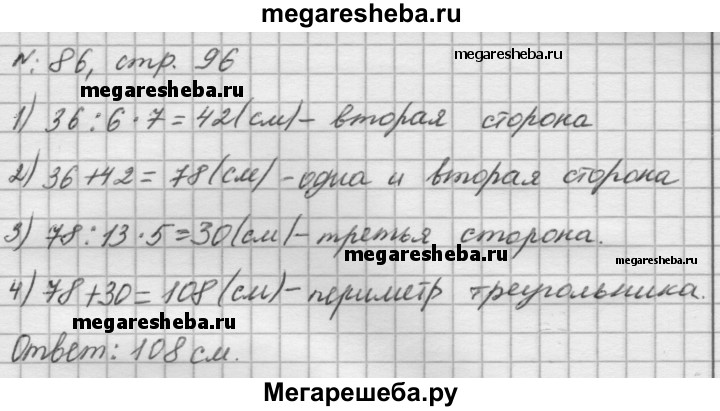 megaresheba.ru
№ 86, стр. 96
megaresheba.ru
megaresheba.ru
1) 36 : 6 · 7 = 42 (см) – вторая сторона
2) 36 + 42 = 78 (см) – одна и вторая сторона
3) 78 : 13 · 5 = 30 (см) – третья сторона.
megaresheba.ru
megaresheba.ru
4) 78 + 30 = 108 (см) – периметр треугольника.
megaresheba.ru
Ответ: 108 см.
Мегарешеба.ру